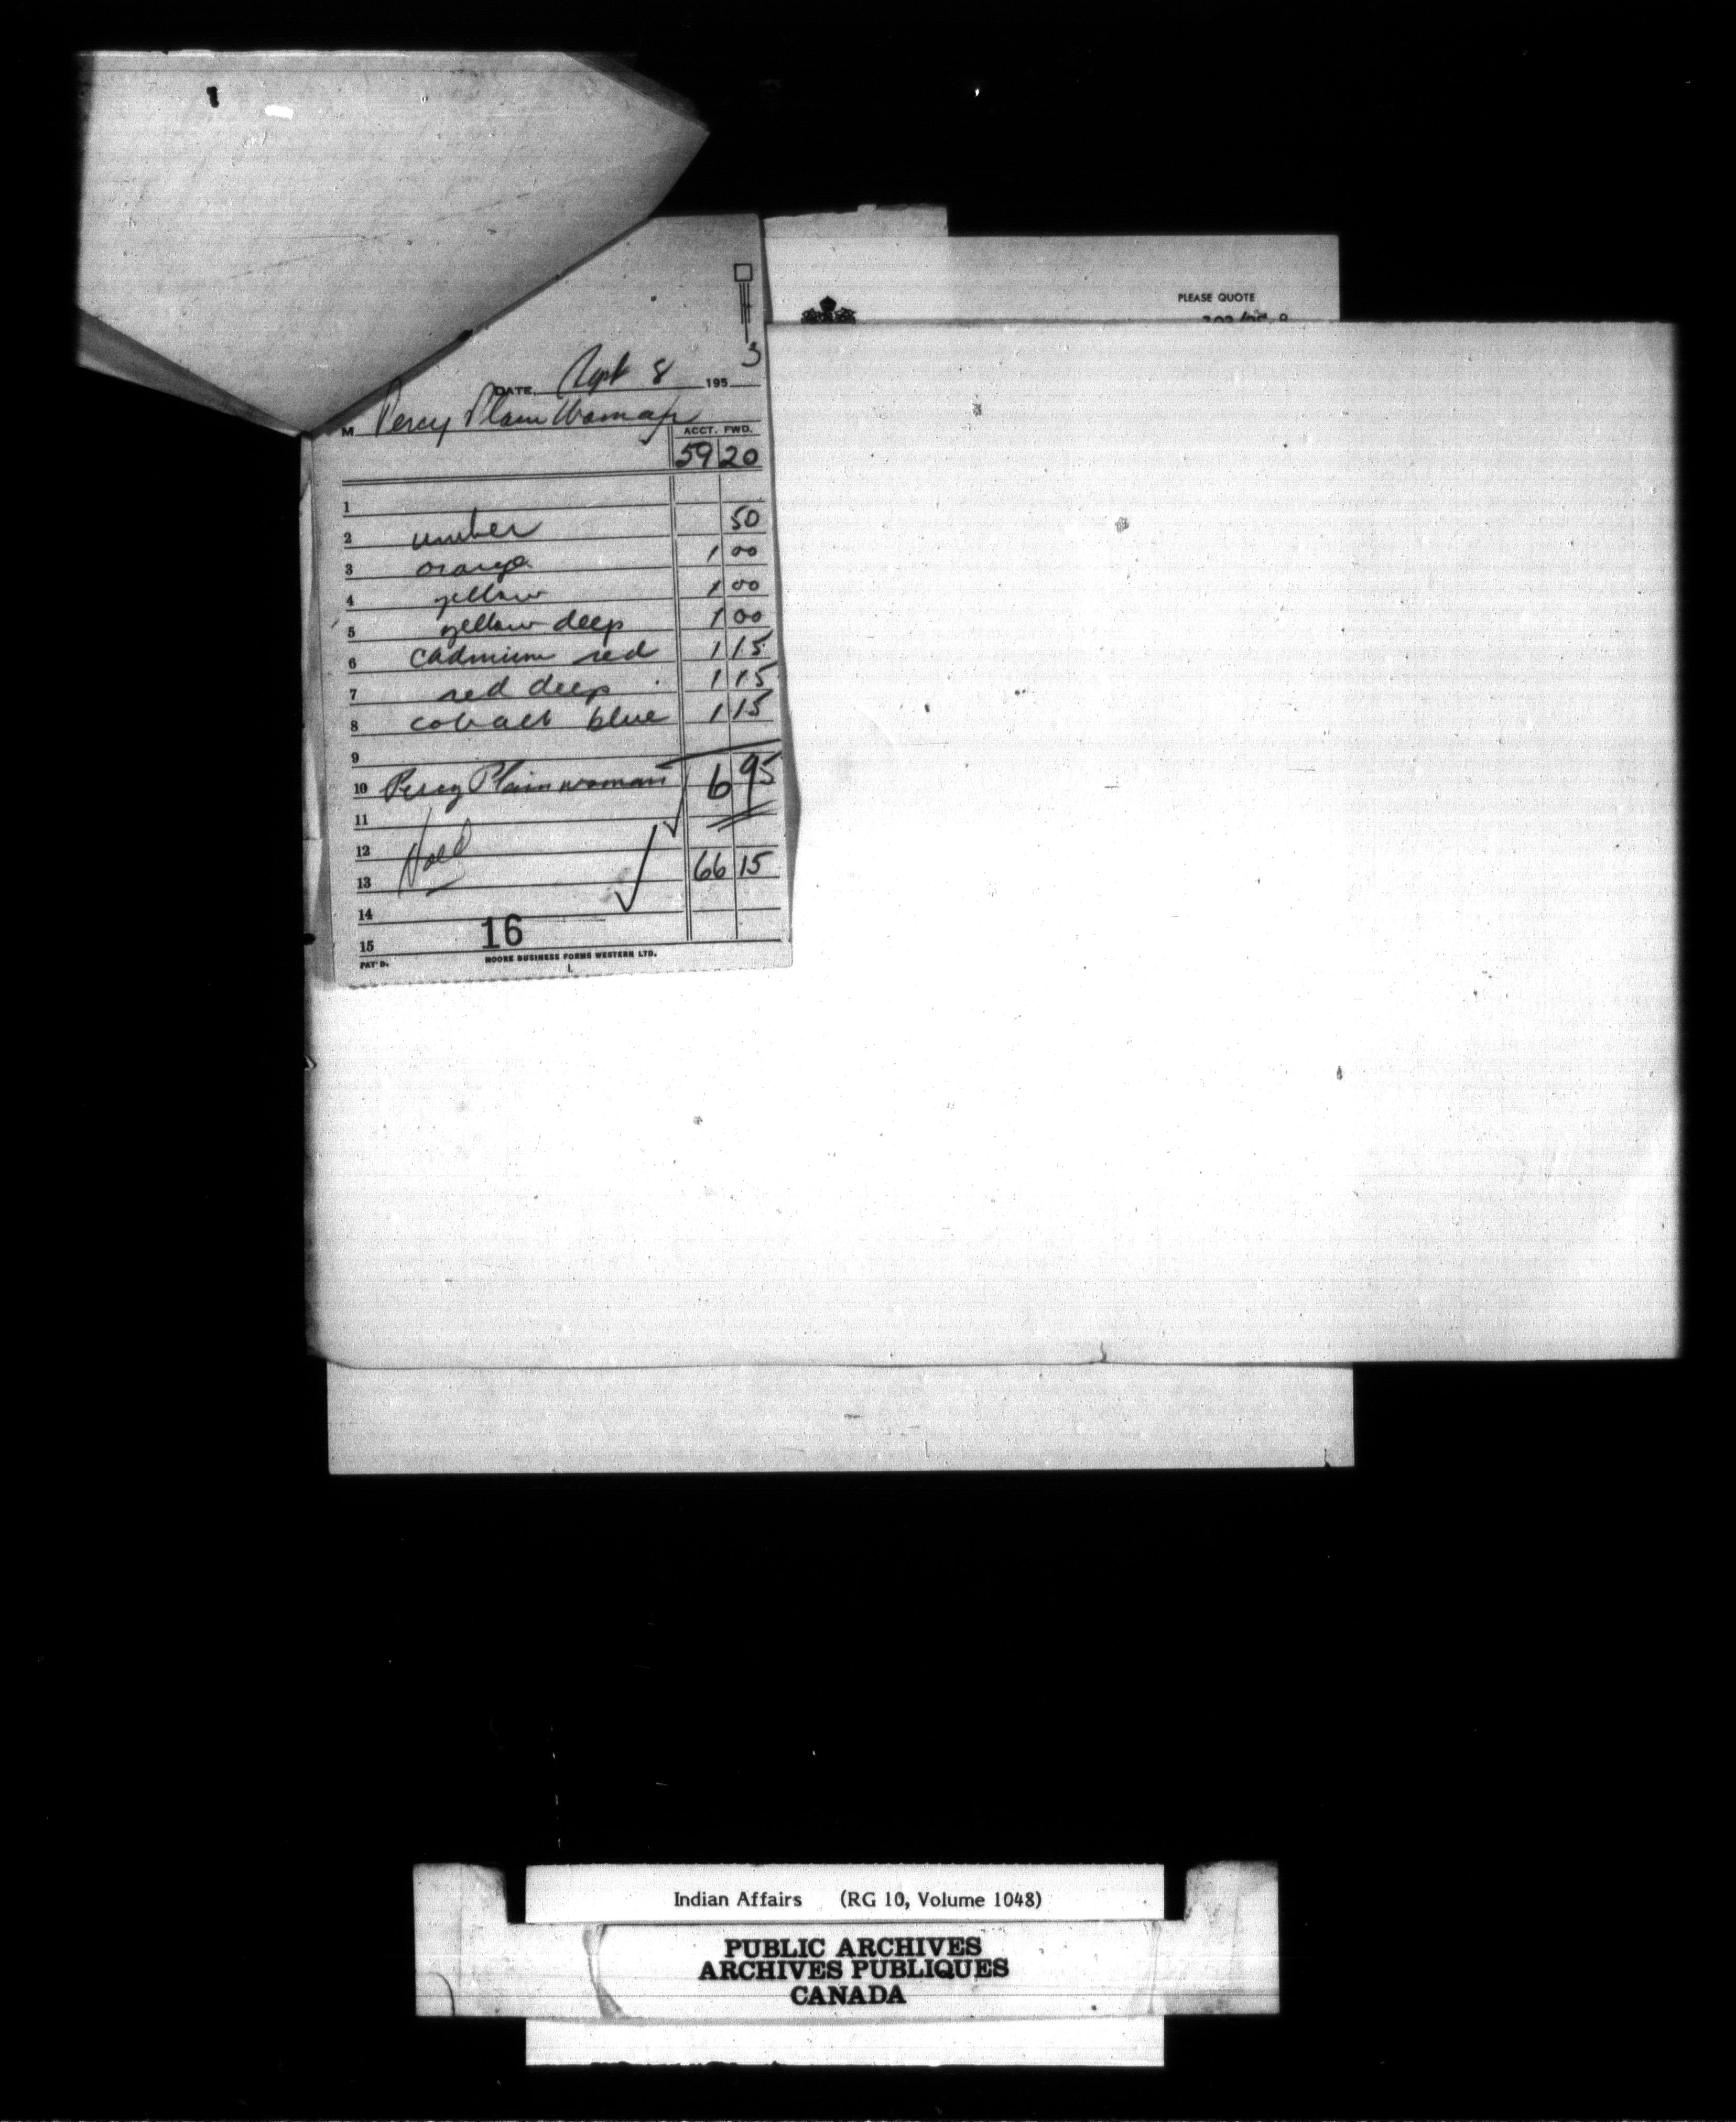 PLEASE QUOTE
DATE Sept 8 1953
M Percy Plain Woman
ACCT. FWD.
59 20
1
2 umber 50
3 orange 1 00
4 yellow 1 00
5 yellow deep 1 00
6 cadmium red 1 15
7 red deep 1 15
8 cobalt blue 1 15
9
10 Percy Plain woman 6 95
11
12
13 66 15
14
15 16
PAT'D. MOORE BUSINESS FORMS WESTERN LTD.
Indian Affairs (RG 10, Volume 1048)
PUBLIC ARCHIVES
ARCHIVES PUBLIQUES
CANADA